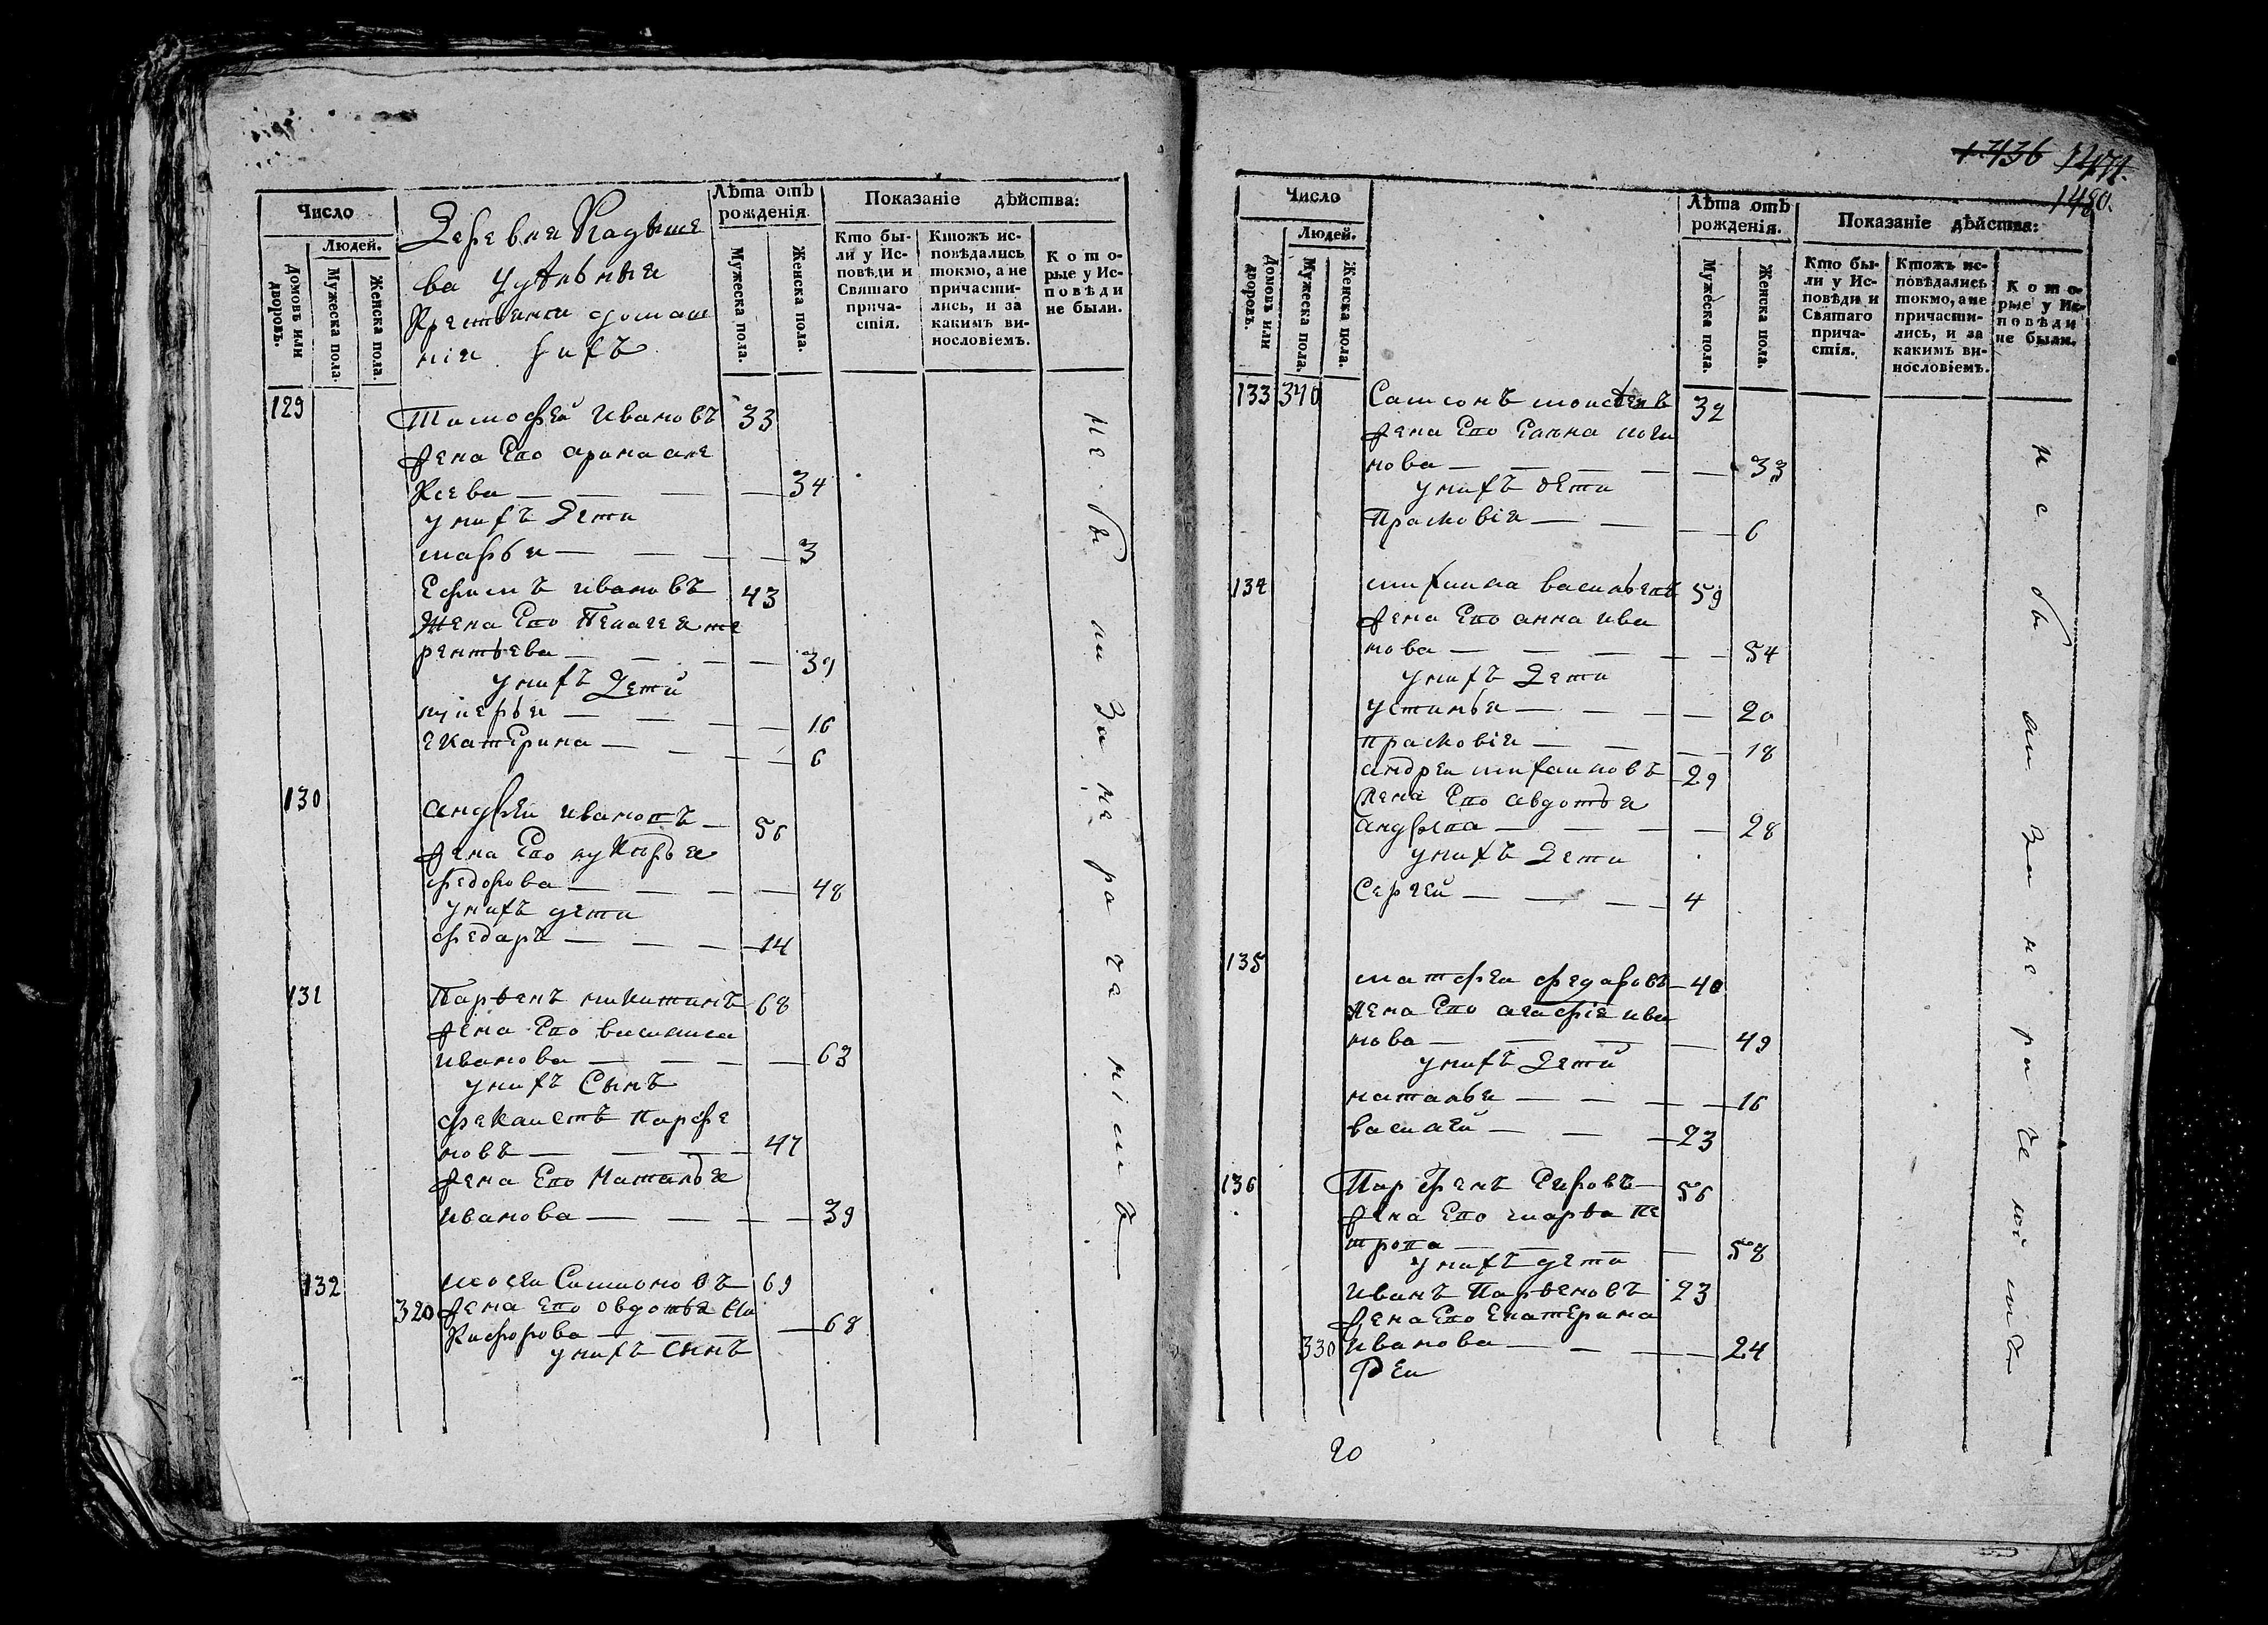 Число
Людей.
Домовъ или дворовъ.
Мужеска пола.
Женска пола.
Деревня Кадыше
ва Удѣльныя
Крестьяни домаш
нія ихъ
Лѣта отъ рожденія.
Мужеска пола.
Женска пола.
Показаніе дѣйства:
Кто бы-
ли у Ис-
повѣди и
Святаго
прича-
стія.
Ктожъ ис-
повѣдались
токмо, а не
причасти-
лись, и за
какимъ ви-
нословіемъ.
Кото-
рые у Ис-
повѣди
не были.
129 Тимофей Ивановъ 33
жена Его арина але
ксева — — — — 34
у нихъ Дети
марья — — — — 3
Ефимъ ивановъ 43
Жена Его Пелагея те
рентьева — — — — 39
у нихъ Дети
лукерья — — — — 16
екатЕрина — — — — 6
130 андрей ивановъ — 56
жена Его лукерья
федорова — — — — 48
у нихъ дети
федаръ — — — — 14
131 Парфенъ никитинъ 68
жена Его василиса
иванова — — — — 63
у нихъ Сынъ
феклистъ парфе
новъ — — — — 47
жена Его наталья
иванова — — — — 39
132 мосеи Самсоновъ 69
320 жена его овдотья Ни
кифорова — — 68
у нихъ сынъ
не бы ли за не ра че ні и мъ
1436 1471.
1480.
Число
Людей.
Домовъ или дворовъ.
Мужеска пола.
Женска пола.
Лѣта отъ рожденія.
Мужеска пола.
Женска пола.
Показаніе дѣйства:
Кто бы-
ли у Ис-
повѣди и
Святаго
прича-
стія.
Ктожъ ис-
повѣдались
токмо, а не
причасти-
лись, и за
какимъ ви-
нословіемъ.
Кото-
рые у Ис-
повѣди
не были.
133 340 Самсонъ моисеевъ 32
жена Его
нова — — — — 33
у нихъ дети
Прасковія — — — 6
134 михаила васильевъ 59
жена Его анна ива
нова — — — — 54
у нихъ Дети
устинья — — — 20
прасковія — — — 18
андреи михаиловъ 29
жена Его авдотья
андрева — — — 28
у нихъ Дети
Сергей — — — 4
135 матфеи федаровъ — 40
жена Его агафія ива
нова — — — — 49
у нихъ Дети
наталья — — — 16
василей — — — 23
136 Парфенъ — 56
жена Его марѳа пе
трова — — — 58
у нихъ дети
иванъ Парфеновъ 23
жена Его ЕкатЕрина
330 иванова — — — 24
Рей
не бы ли за не ра че ні и мъ
20